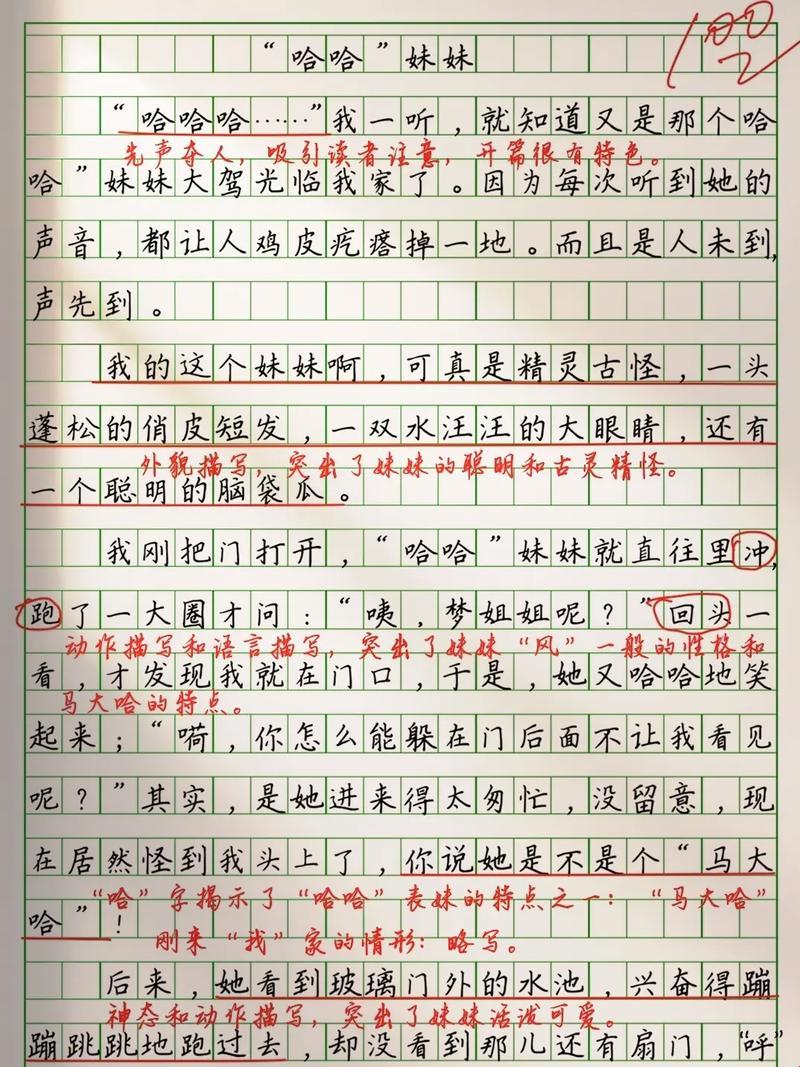 100
“哈哈”妹妹
“哈哈哈……”我一听，就知道又是那个哈
先声夺人，吸引读者注意，开篇很有特色。
哈”妹妹大驾光临我家了。因为每次听到她的
声音，都让人鸡皮疙瘩掉一地。而且是人未到，
声先到。
我的这个妹妹啊，可真是精灵古怪，一头
蓬松的俏皮短发，一双水汪汪的大眼睛，还有
外貌描写，突出了妹妹的聪明和古灵精怪。
一个聪明的脑袋瓜。
我刚把门打开，“哈哈”妹妹就直往里冲，
跑了一大圈才问：“咦，梦姐姐呢？”回头一
动作描写和语言描写，突出了妹妹“风”一般的性格和
看，才发现我就在门口，于是，她又哈哈地笑
马大哈的特点。
起来；“嗬，你怎么能躲在门后面不让我看见
呢？”其实，是她进来得太匆忙，没留意，现
在居然怪到我头上了，你说她是不是个“马大
“哈”字揭示了“哈哈”表妹的特点之一：“马大哈”
哈”！
刚来“我”家的情形：略写。
后来，她看到玻璃门外的水池，兴奋得蹦
神态和动作描写，突出了妹妹活泼可爱。
蹦跳跳地跑过去，却没看到那儿还有扇门，“呼”